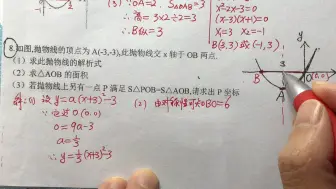 ∴OA=2. S△OAB=3
∴高=3×2÷2=3
∴B纵=3
x²-2x-3=0
(x-3)(x+1)=0
X₁=3 X₂=-1
B(3,3)或(-1,3)
8.如图,抛物线的顶点为A(-3,-3),此抛物线交x轴于OB两点.
(1)求此抛物线的解析式
(2)求△AOB的面积
(3)若抛物线上另有一点P满足S△POB=S△AOB,请求出P坐标
解:(1) 设y=a(x+3)²-3
∵过点O(0,0)
0=9a-3
a=1/3
∴y=1/3(x+3)²-3
(2) 由对称性可知BO=6
y
3
B
O(0,0)
A